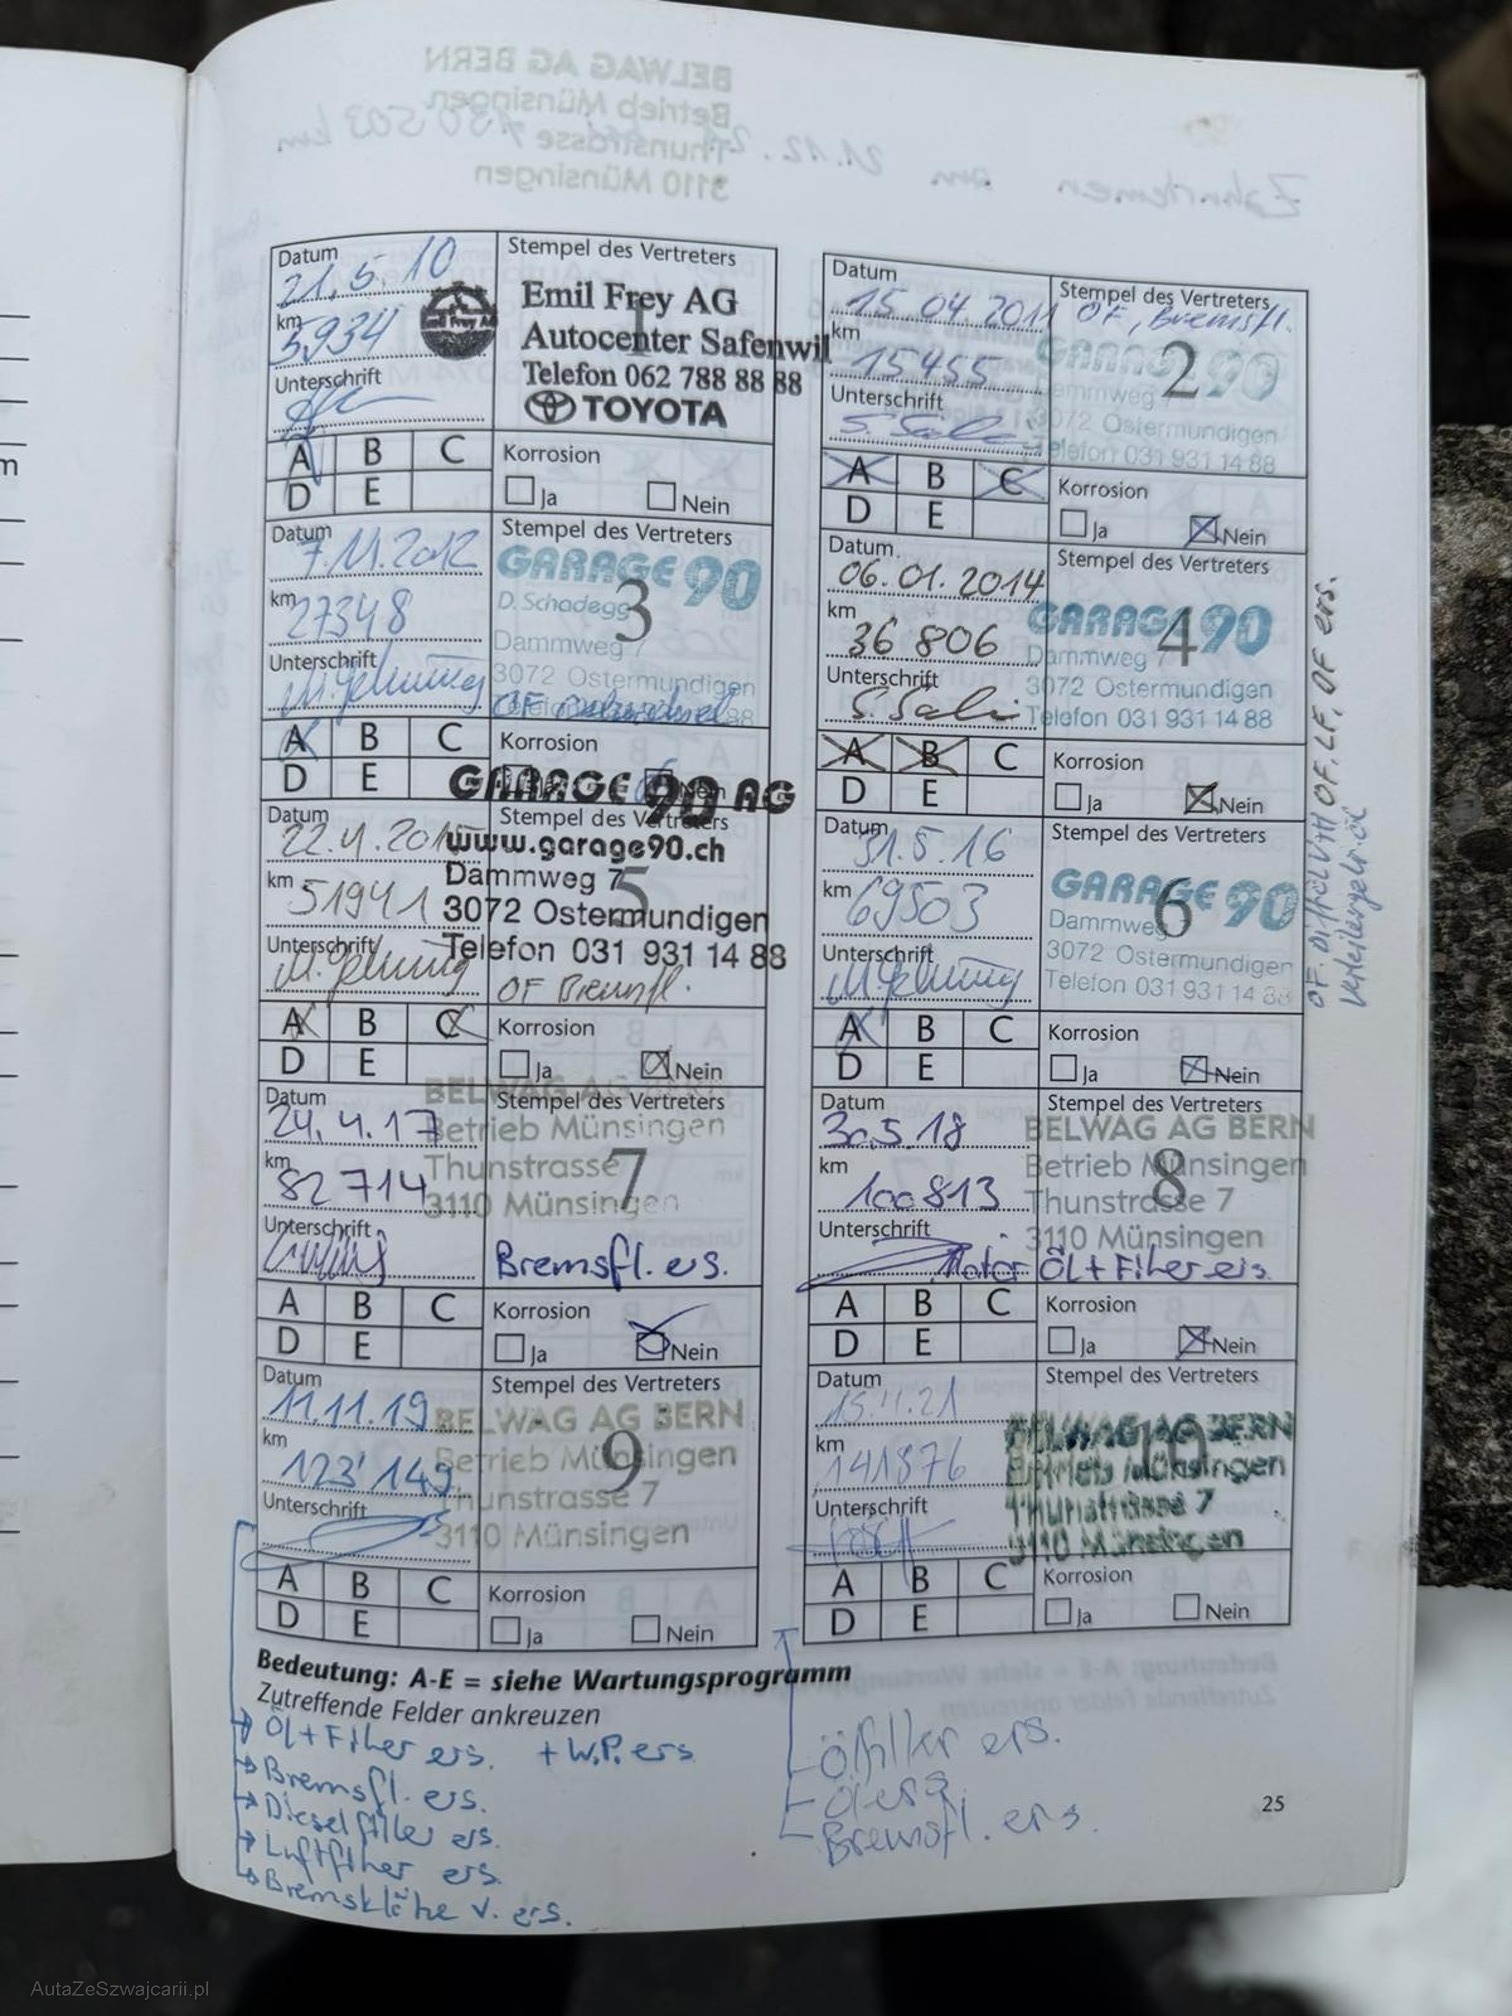 BELWAG AG BERN
Betrieb Münsingen
Thunstrasse 7
3110 Münsingen
Zahnriemen am 21.12. 130 503 km
Datum
21.5.10
km
5934
Unterschrift
Stempel des Vertreters
1
Emil Frey AG
Emil Frey AG
Autocenter Safenwil
Telefon 062 788 88 88
TOYOTA
A B C
D E
Korrosion
Ja Nein
Datum
15.04.2011
km
15455
Unterschrift
Stempel des Vertreters
ÖF, Bremsfl.
2
GARAGE 90
Dammweg 7
3072 Ostermundigen
Telefon 031 931 14 88
A B C
D E
Korrosion
Ja Nein
Datum
7.11.2012
km
27348
Unterschrift
Stempel des Vertreters
3
GARAGE 90
D. Schadegg
Dammweg 7
3072 Ostermundigen
ÖF
A B C
D E
Korrosion
Nein
Datum
06.01.2014
km
36 806
Unterschrift
S. Sali
Stempel des Vertreters
4
GARAGE 90
Dammweg 7
3072 Ostermundigen
Telefon 031 931 14 88
A B C
D E
Korrosion
Ja Nein
Datum
22.4.201
km
51941
Unterschrift
GARAGE 90 AG
Stempel des Vertreters
5
www.garage90.ch
Dammweg 7
3072 Ostermundigen
Telefon 031 931 14 88
ÖF Bremsfl.
A B C
D E
Korrosion
Ja Nein
Datum
31.5.16
km
69503
Unterschrift
Stempel des Vertreters
6
GARAGE 90
Dammweg 7
3072 Ostermundigen
Telefon 031 931 14 88
A B C
D E
Korrosion
Ja Nein
OF, LF, ÖF ers.
Datum
24.4.17
km
82714
Unterschrift
Stempel des Vertreters
7
BELWAG AG BERN
Betrieb Münsingen
Thunstrasse 7
3110 Münsingen
Bremsfl. ers.
A B C
D E
Korrosion
Ja Nein
Datum
30.5.18
km
100813
Unterschrift
Stempel des Vertreters
8
BELWAG AG BERN
Betrieb Münsingen
Thunstrasse 7
3110 Münsingen
Motor Öl + Filter ers.
A B C
D E
Korrosion
Ja Nein
Datum
11.11.19
km
123'149
Unterschrift
Stempel des Vertreters
9
BELWAG AG BERN
Betrieb Münsingen
Thunstrasse 7
3110 Münsingen
A B C
D E
Korrosion
Ja Nein
Datum
15.11.21
km
141876
Unterschrift
Stempel des Vertreters
10
BELWAG AG BERN
Betrieb Münsingen
Thunstrasse 7
3110 Münsingen
A B C
D E
Korrosion
Ja Nein
Bedeutung: A-E = siehe Wartungsprogramm
Zutreffende Felder ankreuzen
Öl + Filter ers. + W.P. ers
Bremsfl. ers.
Dieselfilter ers.
Luftfilter ers.
Bremsklötze v. ers.
Ölfilter ers.
Bremsfl. ers.
25
AutaZeSzwajcarii.pl